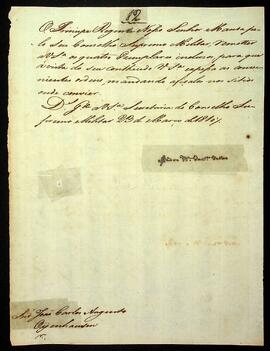 82
O Principe Regente Nosso Senhor Manda pe
lo Seu Conselho Supremo Militar, remetter
a VS.ª os quatro Exemplares incluzos para que
a vista do seu contheudo VS.ª expessa as conve
nientes ordens, mandando afixalo nos sitios
onde convier.
D.s G.e a VS.ª Secretaria do Conselho Su
premo Militar 29 de Março de 181
Snr João Carlos Augusto
Oyenhausen